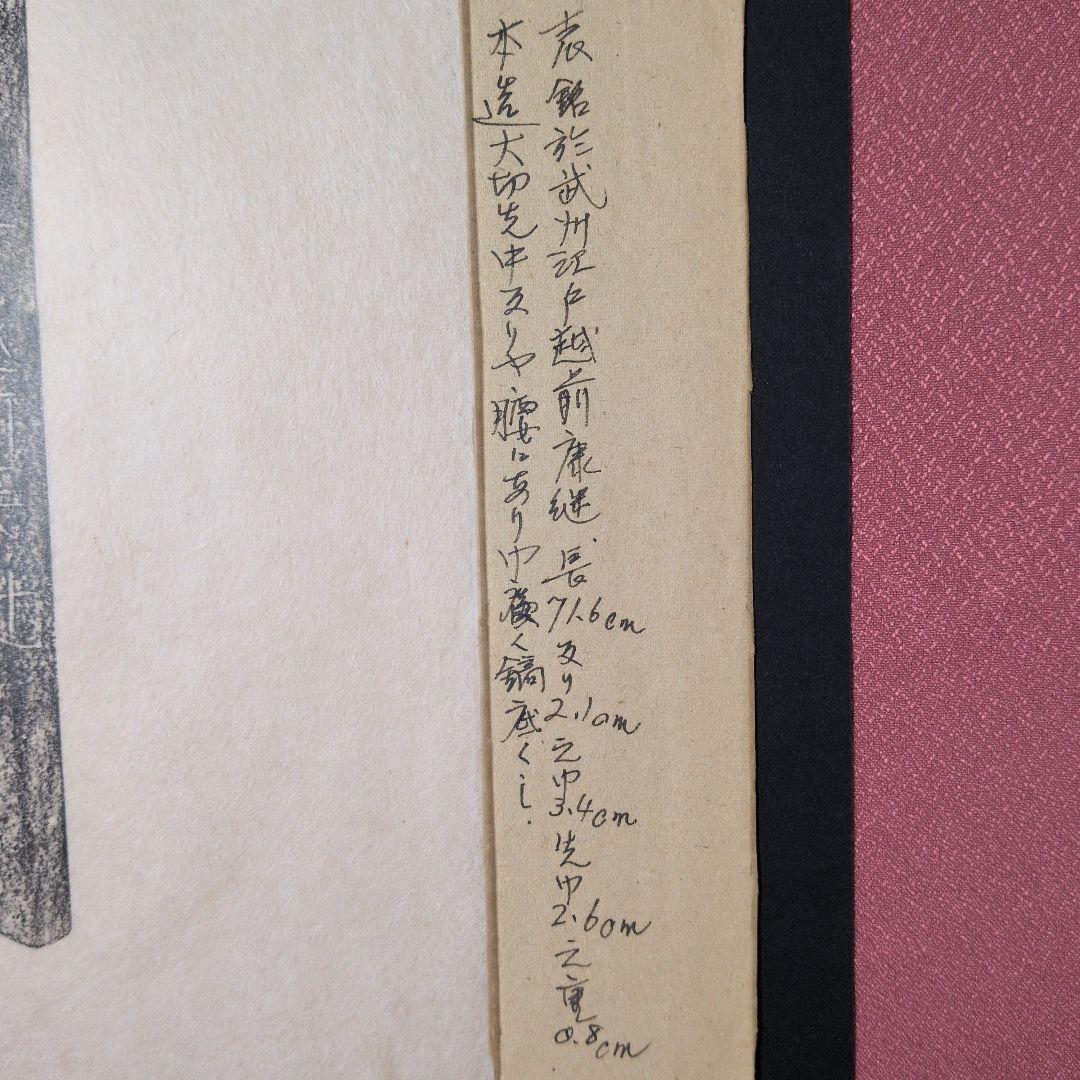 表銘於武州江戸越前康継 長71.6cm 反り2.1cm 元巾3.4cm 先巾2.6cm 元重0.8cm
本造大切先中反りや腰にあり巾広く鎬底くし.